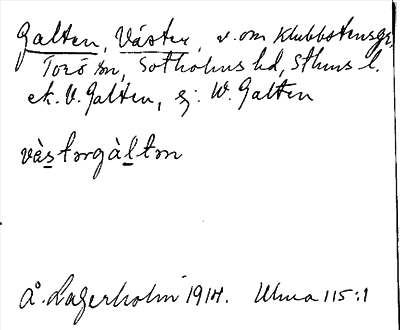 Galten, Väster, v. om Klubbstensgr,
Torö sn, Sotholms hd, Sthms l.
ek. V. Galten, sj: W. Galten
våstorgàlton
A. Lagerholm 1914. Ulma 115:1